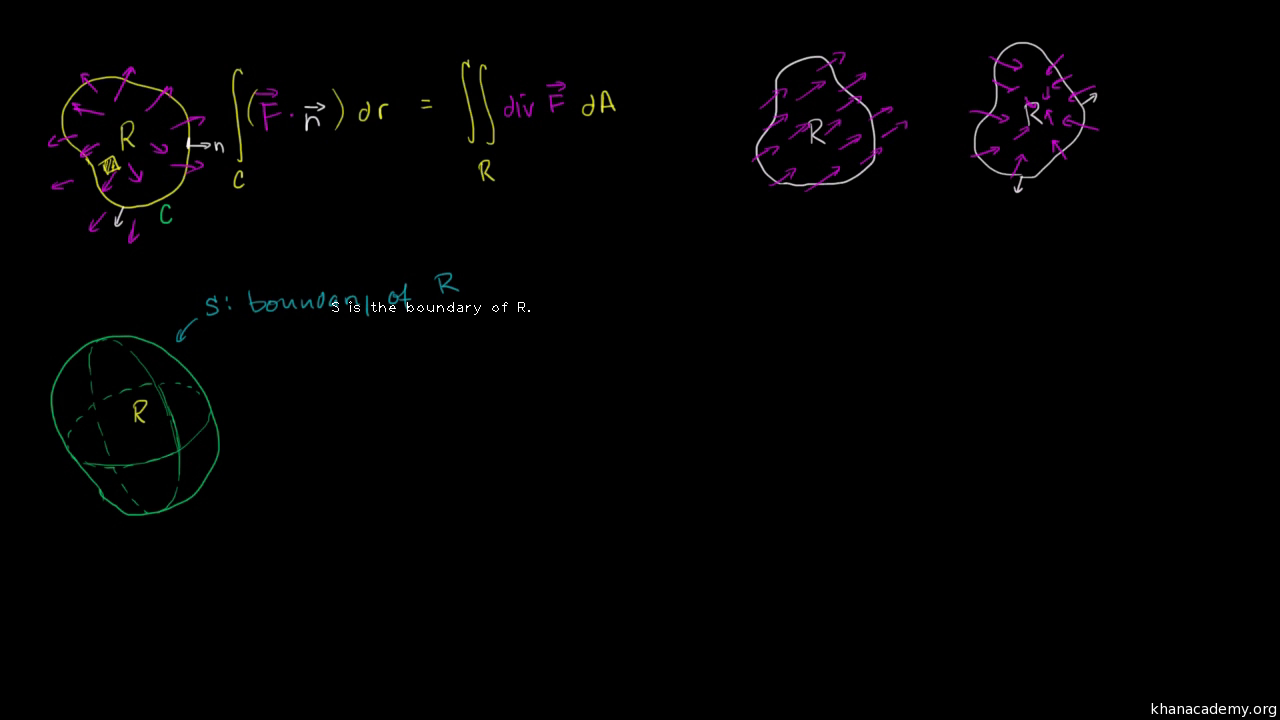 R
n
C
∫_C (F⃗ · n⃗) dr = ∬_R div F⃗ dA
R
R
S: boundary of R
S is the boundary of R.
R
khanacademy.org